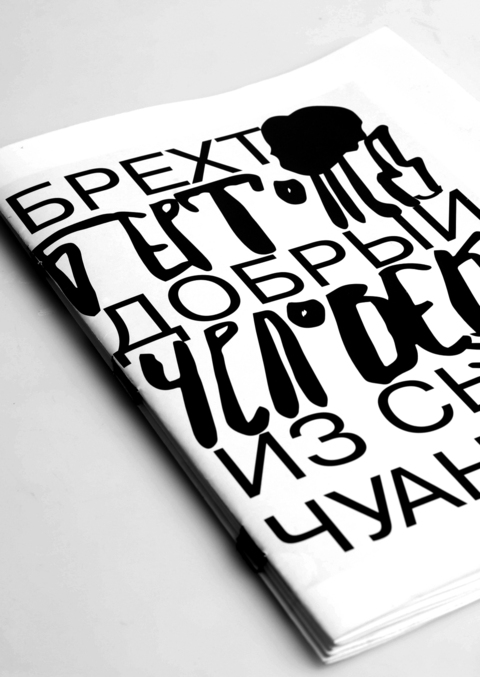 БРЕХТ
БЕРТОЛЬД
ДОБРЫЙ
ЧЕЛОВЕК
ИЗ СЫ
ЧУАН